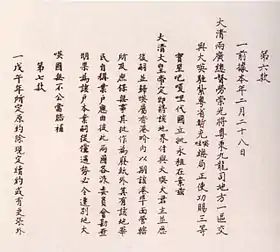 第六款
一前據本年二月二十八日
大清兩廣總督勞崇光將粵東九龍司地方一區交
與大英駐紮粵省暫充英總局正使功賜三等
寶星巴夏禮代國立批永租在案茲
大清大皇帝定即將該地界付與大英大君主並歷
後嗣並歸英屬香港界內以期該港埠面管轄
所及庶保無事其批作為廢紙外其有該地華
民自稱業戶應由彼此兩國各派委員會勘查
明果為該戶本業嗣後倘遇勢必令遷別地大
英國無不公當賠補
第七款
一戊午年所定原約除現定續約或有更張外